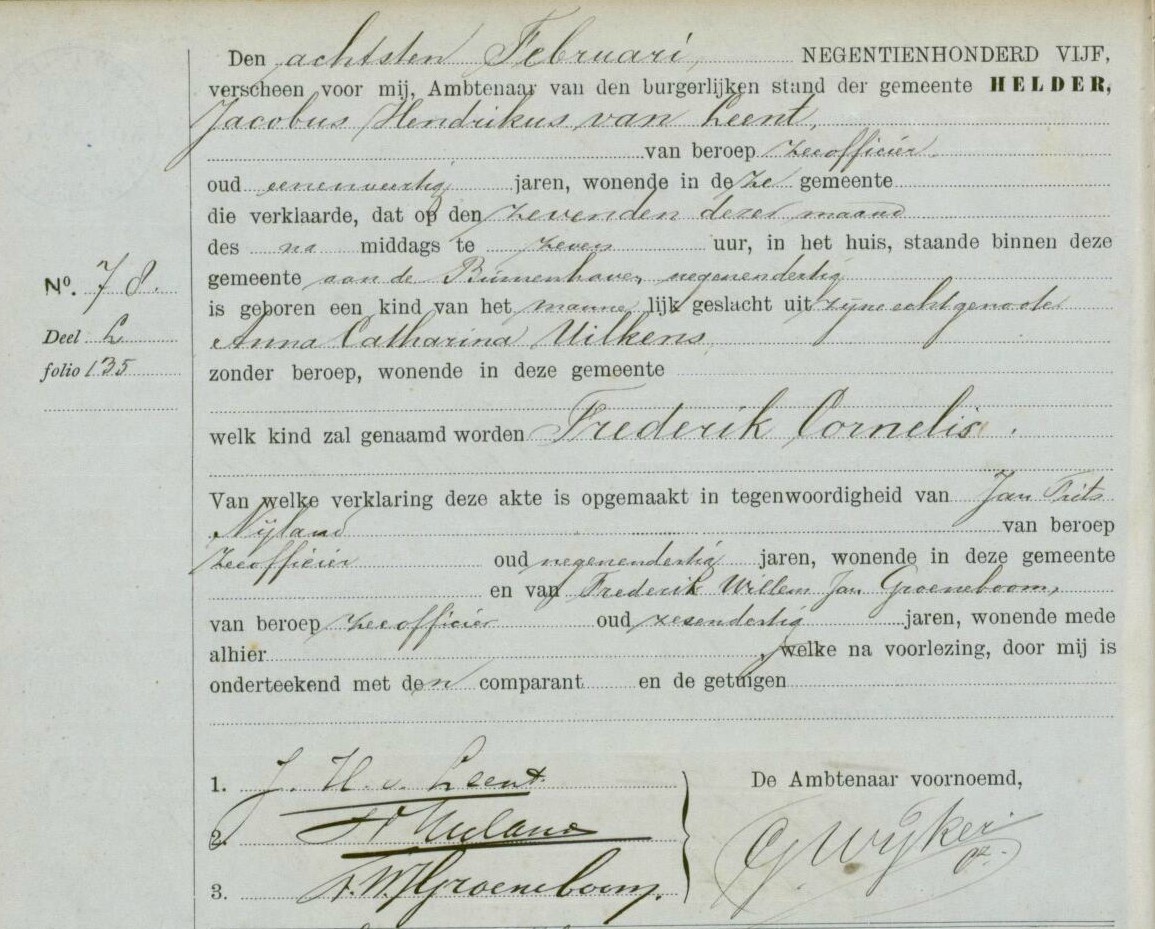 Den achtsten Februari, NEGENTIENHONDERD VIJF,
verscheen voor mij, Ambtenaar van den burgerlijken stand der gemeente HELDER,
Jacobus Hendrikus van Leent,
van beroep zeeofficier
oud eenenveertig jaren, wonende in deze gemeente
die verklaarde, dat op den zevenden dezer maand
des na middags te zeven uur, in het huis, staande binnen deze
gemeente aan de Binnenhaven negenendertig
is geboren een kind van het manne lijk geslacht uit zijne echtgenoote
Anna Catharina Uilkens,
zonder beroep, wonende in deze gemeente
welk kind zal genaamd worden Frederik Cornelis.
No. 78.
Deel L
folio 135
Van welke verklaring deze akte is opgemaakt in tegenwoordigheid van Jan Frits
Nijland van beroep
zeeofficier oud negenendertig jaren, wonende in deze gemeente
en van Frederik Willem Jan Groeneboom,
van beroep zeeofficier oud zesendertig jaren, wonende mede
alhier, welke na voorlezing, door mij is
onderteekend met den comparant en de getuigen
1. J. H. v. Leent.
2. Nijland
3. F.W.J Groeneboom.
De Ambtenaar voornoemd,
Wijker